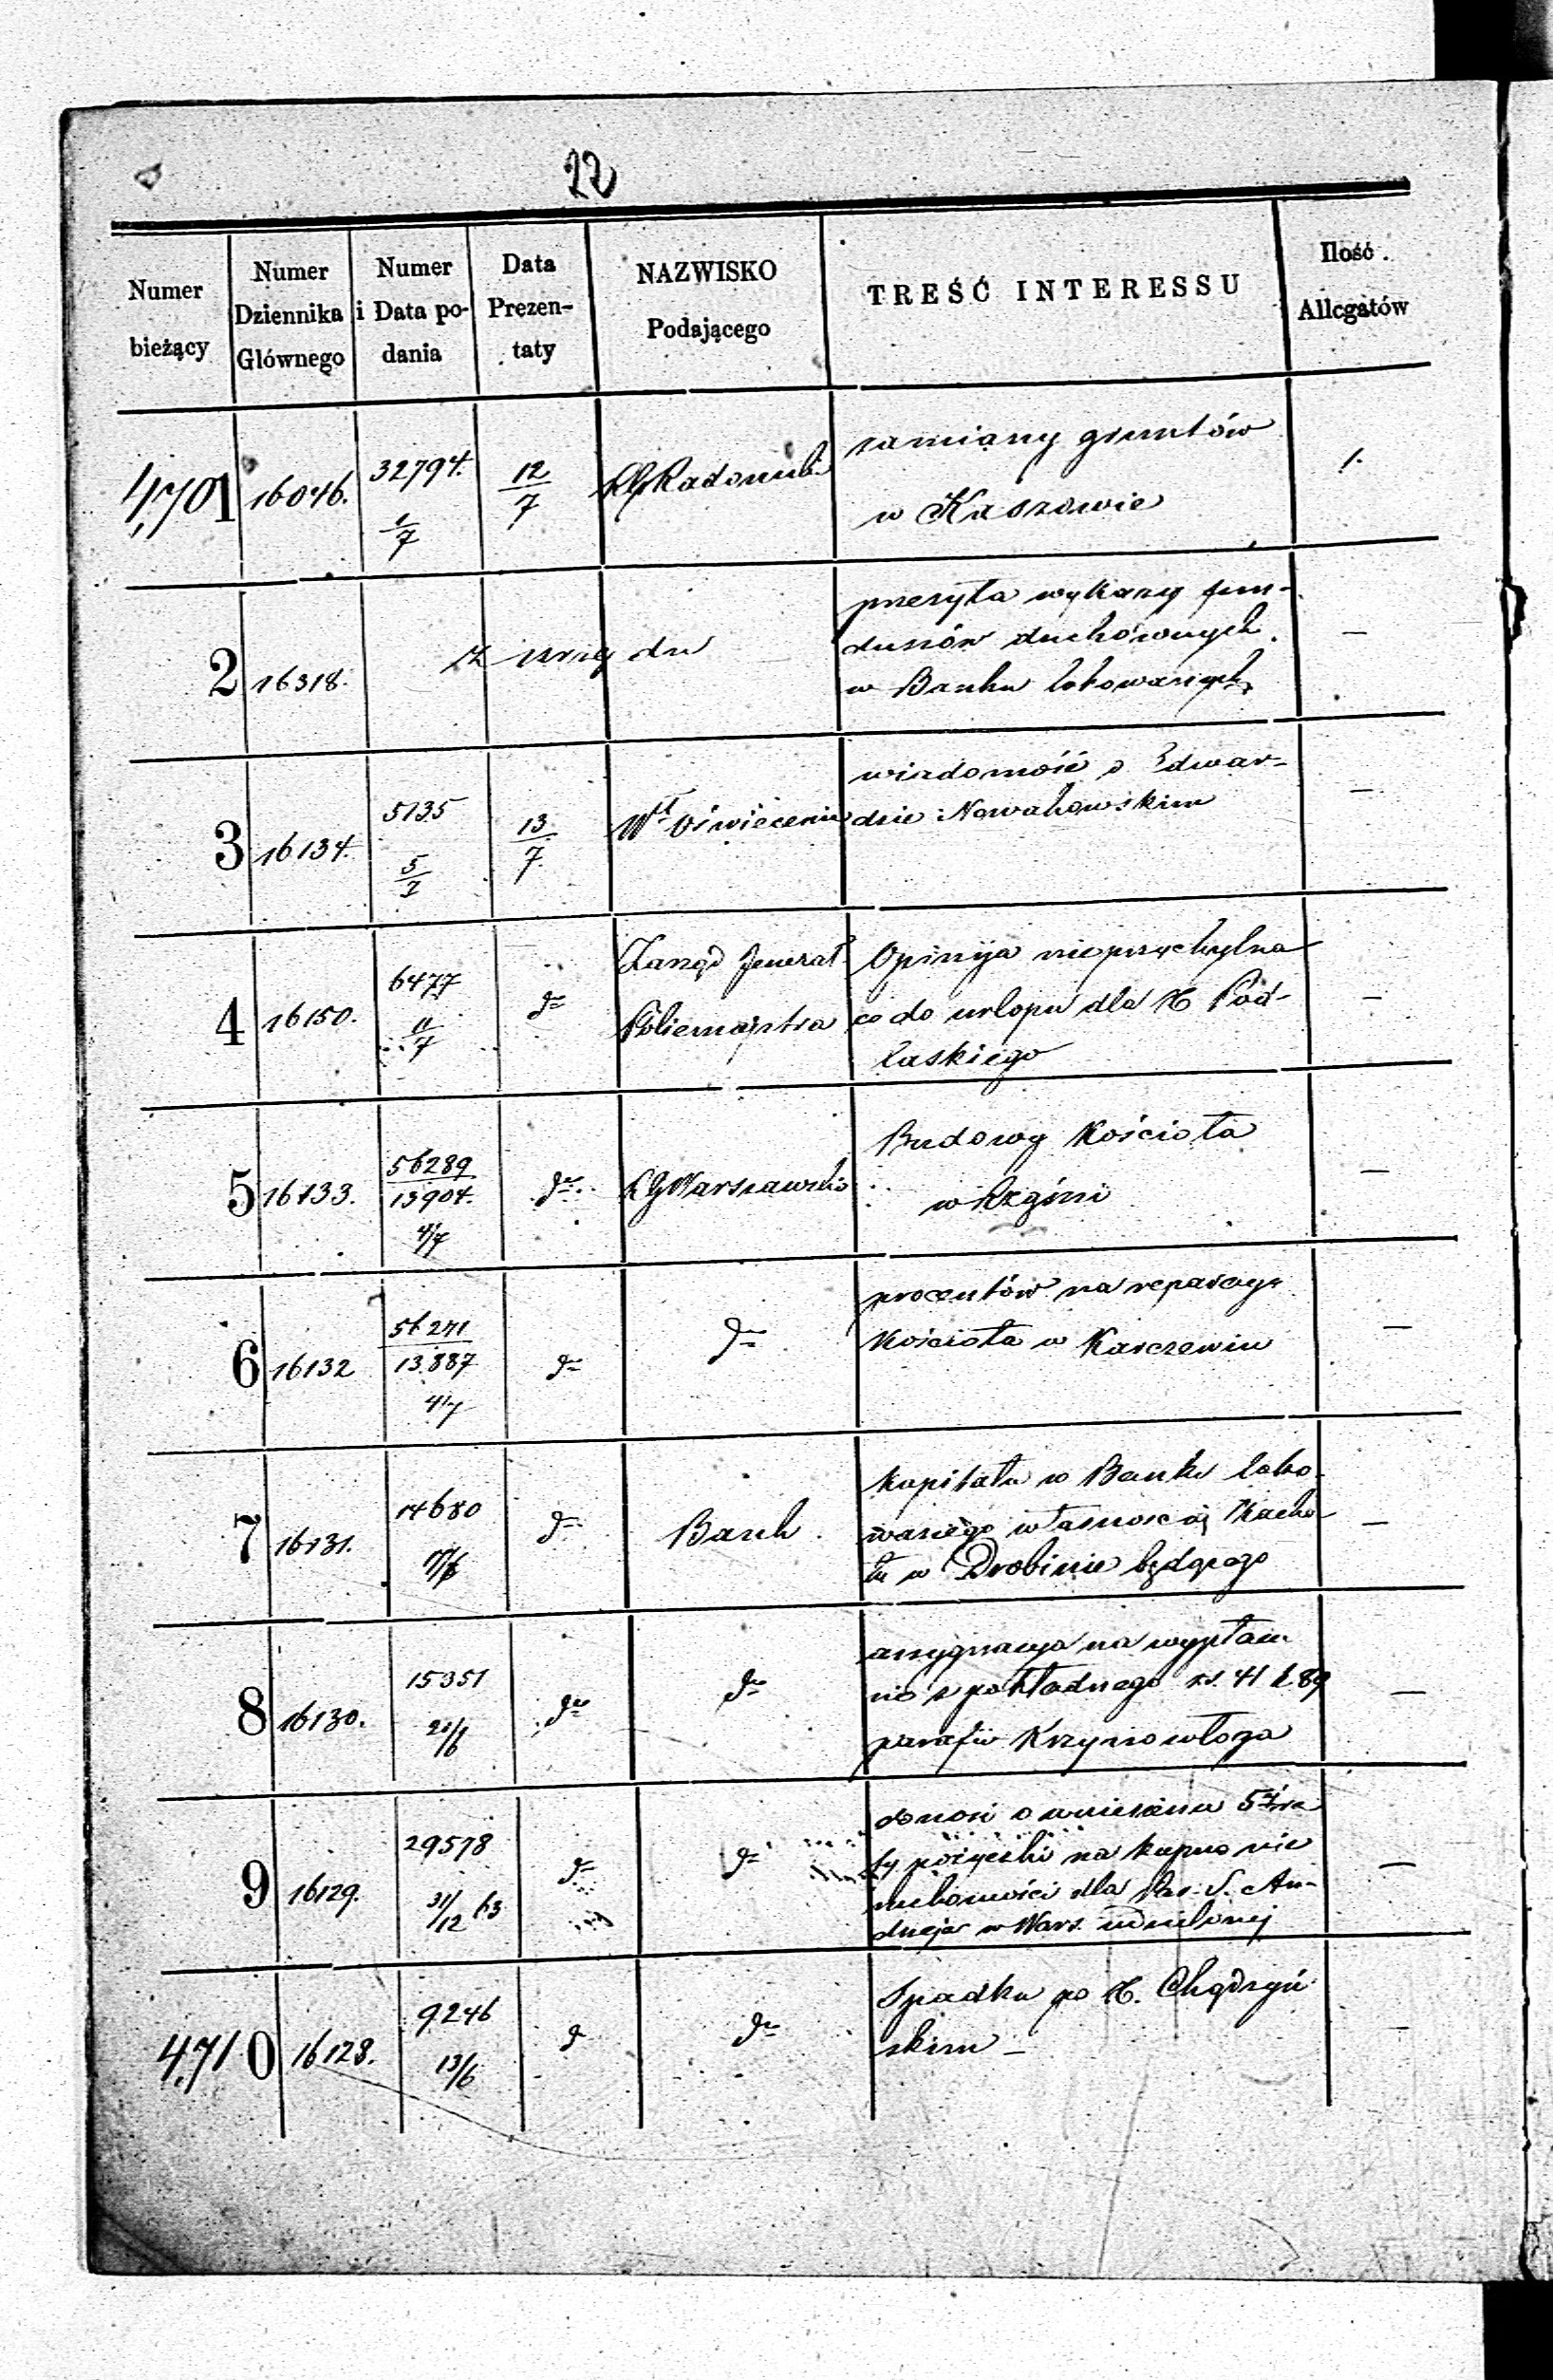 22
Numer bieżący | Numer Dziennika Głównego | Numer i Data podania | Data Prezentaty | NAZWISKO Podającego | TREŚĆ INTERESSU | Ilość Allegatów
4,701 | 16046. | 32794. 1/7 | 12/7 | RG Radomski | zamiany gruntów
w Kaszowie | 1.
2 | 16318. | z urzędu | przesyła wykazy fun-
duszów duchownych
w Banku lokowanych | —
3 | 16134. | 5135 5/7 | 13/7 | Wł Oświecenia | wiadomość o Edwar-
dzie Nowakowskim | —
4 | 16150. | 6477 11/7 | do | Zarząd Jenerał | Opinija nieprzychylna
Policmajstra | co do urlopu dla X Pod-
laskiego | —
5 | 16133. | 56289/13904. 4/7 | do | RG Warszawski | Budowy Kościoła
w | —
6 | 16132 | 56271/13887 4/7 | do | do | procentów na reparacye
Kościoła w Karczewiu | —
7 | 16131. | 14680 17/6 | do | Bank | Kapitału w Banku loko-
wanego własnością
w Drobinie będącego | —
8 | 16130. | 15351 21/6 | do | do | assygnacya na wypłace-
nie z pokładnego rs. 41 k 89
parafii Krzynowłoga | —
9 | 16129. | 29578 31/12 63 | do | do | donosi o wniesieniu 5
ty pożyczki na kupno nie
ruchomości dla Par. S. An-
drzeja w Wars. udzielonej | —
4,710 | 16128. | 9246 13/6 | d | do | Spadku po X. Chądzyń
skim — | —